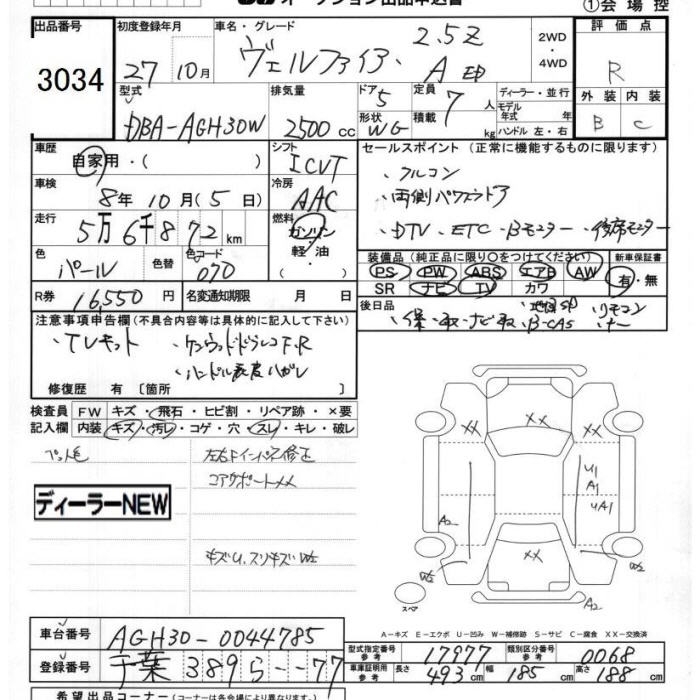 オークション出品申込書 ①会場控
出品番号 初度登録年月 車名・グレード 評価点
3034 27 10月 ヴェルファイア、 2.5Z A 2WD ・ 4WD R
型式 排気量 ドア 5 定員 7 人 ディーラー・並行 外装 内装
DBA-AGH30W 2500 cc 形状 WG 積載 kg モデル年式 年 ハンドル 左・右 B C
車歴 自家用・( ) シフト ICVT セールスポイント (正常に機能するものに限ります)
車検 8年 10月 (5日) 冷房 AAC ・フルコン
・両側パワースライドドア
走行 5万6千872km 燃料 ガソリン 軽油 ・DTV ・ETC ・Bモニター ・後席モニター
色 パール 色替 色コード 070 装備品 (純正品に限り○をつけてください) 新車保証書
PS PW ABS エアB AW 有・無
SR ナビ TV カワ
R券 16,550円 名変通知期限 月 日 後日品
・保・取・ナビ取 ・B-CAS リモコン
注意事項申告欄(不具合内容等は具体的に記入して下さい)
・TVキット ・ケンウッドドラレコF.R
・ハンドル表皮ハガレ
修復歴 有 〔箇所 〕
検査員 FW キズ・飛石・ヒビ割・リペア跡・×要
記入欄 内装 キズ・汚レ・コゲ・穴・スレ・キレ・破レ
左右Fインパネ修正
コアサポートXX
ディーラーNEW
キズU、スリキズW2
XX XX
U1
A1
UA1
A2
XX
W2 W2
スペア A2
A−キズ E−エクボ U−凹み W−補修跡 S−サビ C−腐食 XX−交換済
車台番号 AGH30-0044785
登録番号 千葉 389 ら --77
型式指定番号 参考 17977 類別区分番号 参考 0068
車庫証明用 参考 長さ 493cm 幅 185cm 高さ 188cm
希望出品コーナー(コーナーは各会場により異なります。)